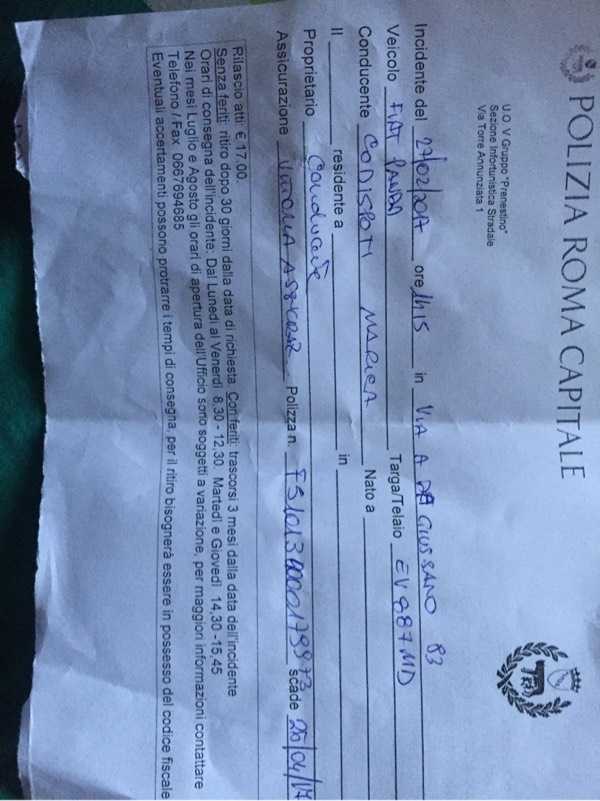 POLIZIA ROMA CAPITALE
U.O. V Gruppo "Prenestino"
Sezione Infortunistica Stradale
Via Torre Annunziata 1
Incidente del 27/02/2017 ore 1415 in VIA A DA GIUSSANO 93
Veicolo FIAT PANDA Targa/Telaio EV987MD
Conducente CODISPOTI MARICA Nato a
Il residente a in
Proprietario Conducente
Assicurazione VITTORIA ASSICURAZ Polizza n. scade 20/04/17
Rilascio atti € 17,00.
Senza feriti: ritiro dopo 30 giorni dalla data di richiesta. Con feriti: trascorsi 3 mesi dalla data dell'incidente
Orari di consegna dell'incidente: Dal Lunedì al Venerdì 8,30 - 12,30 Martedì e Giovedì 14,30 -15,45
Nei mesi Luglio e Agosto gli orari di apertura dell'Ufficio sono soggetti a variazione, per maggiori informazioni contattare
Telefono / Fax 0667694685
Eventuali accertamenti possono protrarre i tempi di consegna, per il ritiro bisognerà essere in possesso del codice fiscale